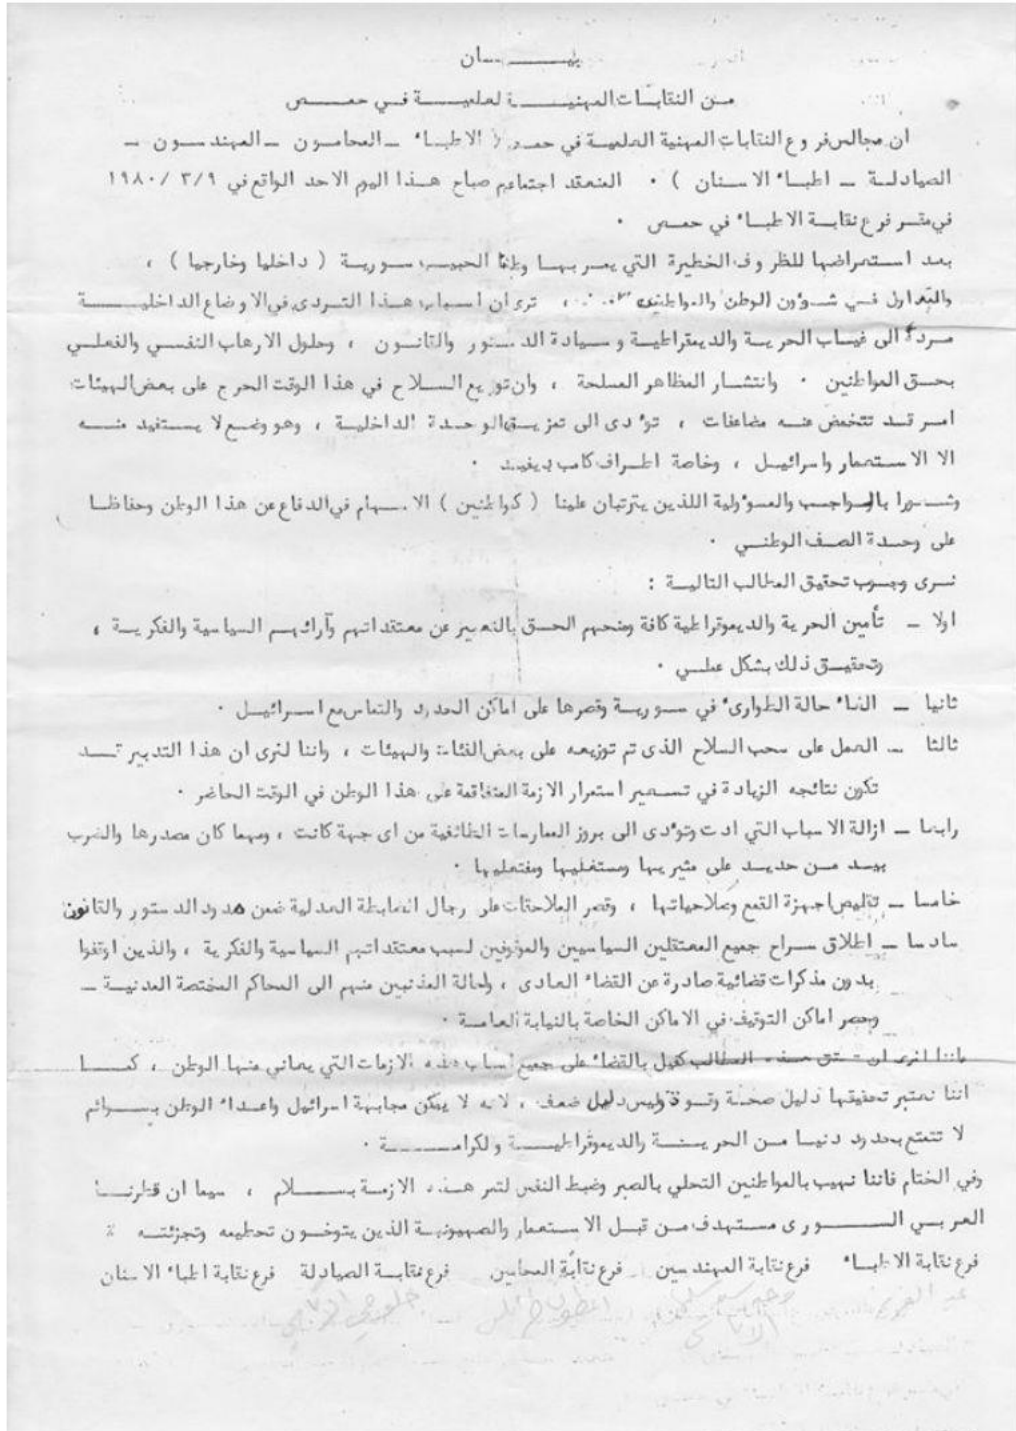 بيـــــــان
من النقابات المهنيـــة العلميـــة في حمـــص
ان مجالس فروع النقابات المهنية العلمية في حمص ( الاطبـاء ـ المحامـون ـ المهندسـون ـ
الصيادلـة ـ اطبـاء الاسـنان ) ٠ المنعقد اجتماعهم صباح هـذا اليوم الاحد الواقع في ٩/ ٣/ ١٩٨٠
في مقـر فرع نقابـة الاطبـاء في حمـص ٠
بعد استعراضها للظروف الخطيرة التي يمر بهـا وطننا الحبيب سوريـة ( داخليا وخارجيا ) ،
والتداول في شـؤون الوطن والمواطنين ، ترى ان اسـباب هـذا التـردى في الاوضاع الداخليـــة
مـرده الى غيـاب الحريـة والديمقراطيـة وسـيادة الدستور والقانـون ، وحلول الارهاب النفسـي والفعلـي
بحـق المواطنين ٠ وانتشـار المظاهر المسلحة ، وان توزيع السـلاح في هذا الوقت الحرج على بعض الهيئات
امـر قـد تتمخض عنـه مضاعفات ، تؤدى الى تمزيـق الوحدة الداخليـة ، وهو وضـع لا يستفيد منـه
الا الاستعمار واسرائيـل ، وخاصة اطـراف كامب ديفيـد ٠
وشـعورا بالواجب والمسؤولية اللذين يترتبان علينا ( كمواطنين ) الاسـهام في الدفاع عن هذا الوطن وحفاظـا
على وحـدة الصـف الوطنـي ٠
نـرى وجـوب تحقيق المطالب التاليـة :
اولا ـ تأمين الحرية والديموقراطية كافة ومنحهم الحـق بالتعبير عن معتقداتهم وآرائهـم السياسية والفكريـة ،
وتحقيـق ذلك بشكل عملـي ٠
ثانيا ـ الغاء حالة الطوارىء في سـوريـة وقصرها على اماكن الحدود والتماس مع اسـرائيـل ٠
ثالثا ـ العمل على سحب السلاح الذى تم توزيعه على بعض الفئات والهيئات ، واننا لنرى ان هذا التدبير قـد
تكون نتائجه الزيادة في تسـعير استمرار الازمة المتفاقمة على هذا الوطن في الوقت الحاضر ٠
رابعا ـ ازالة الاسباب التي ادت وتؤدى الى بروز الممارسات الطائفية من اى جهة كانت ، ومهما كان مصدرها والضرب
بيـد مـن حديـد على مثيريهـا ومستغليهـا ومفتعليهـا ٠
خامسا ـ تقليص اجهزة القمع وصلاحياتهـا ، وقصر الملاحقات على رجال الضابطة العدلية ضمن حدود الدستور والقانون
سادسا ـ اطلاق سـراح جميع المعتقلين السياسيين والموقوفين لسبب معتقداتهم السياسية والفكرية ، والذين اوقفوا
بدون مذكرات قضائية صادرة عن القضاء العادى ، واحالة المذنبين منهم الى المحاكم المختصة المدنيـة ـ
وحصر اماكن التوقيف في الاماكن الخاصة بالنيابة العامـة ٠
واننا لنرى ان تحقيق هـذه المطالب كفيل بالقضاء على جميع اسباب هذه الازمات التي يعاني منها الوطن ، كمـا
اننا نعتبر تحقيقها دليل صحـة وقـوة وليس دليل ضعف ، لانه لا يمكن مجابهة اسرائيل واعـداء الوطن
لا تتمتع بحـدود دنيـا مـن الحريـة والديموقراطيـــة والكرامـــة ٠
وفي الختام فاننا نهيب بالمواطنين التحلي بالصبر وضبط النفس لتمر هـذه الازمـة بسـلام ، سيما ان قطرنــا
العربـي السـورى مستهدف مـن قبـل الاستعمار والصهيونيـة الذين يتوخـون تحطيمه وتجزئتـه
فرع نقابة الاطبـاء فرع نقابة المهندسين فرع نقابة المحامين فرع نقابـة الصيادلة فرع نقابة اطباء الاسنان